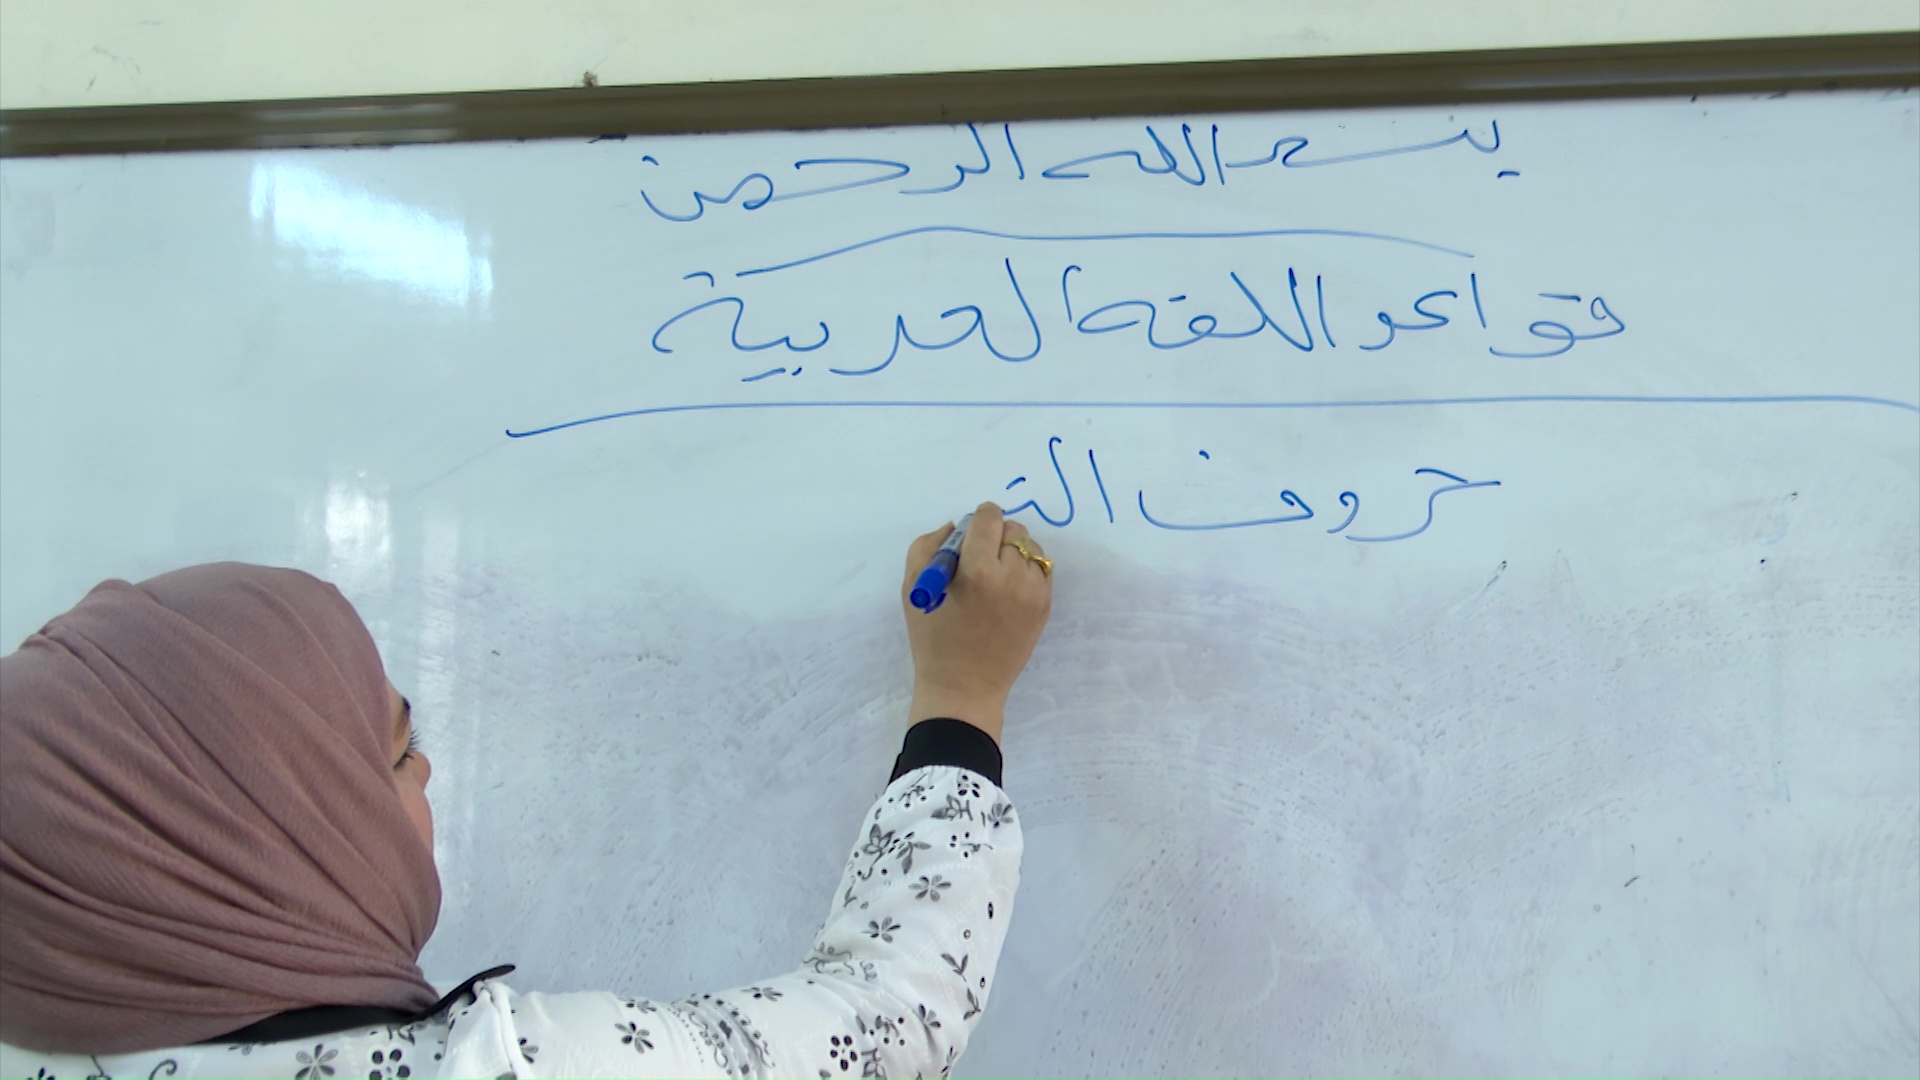 بسم الله الرحمن
قواعد اللغة العربية
حروف الت